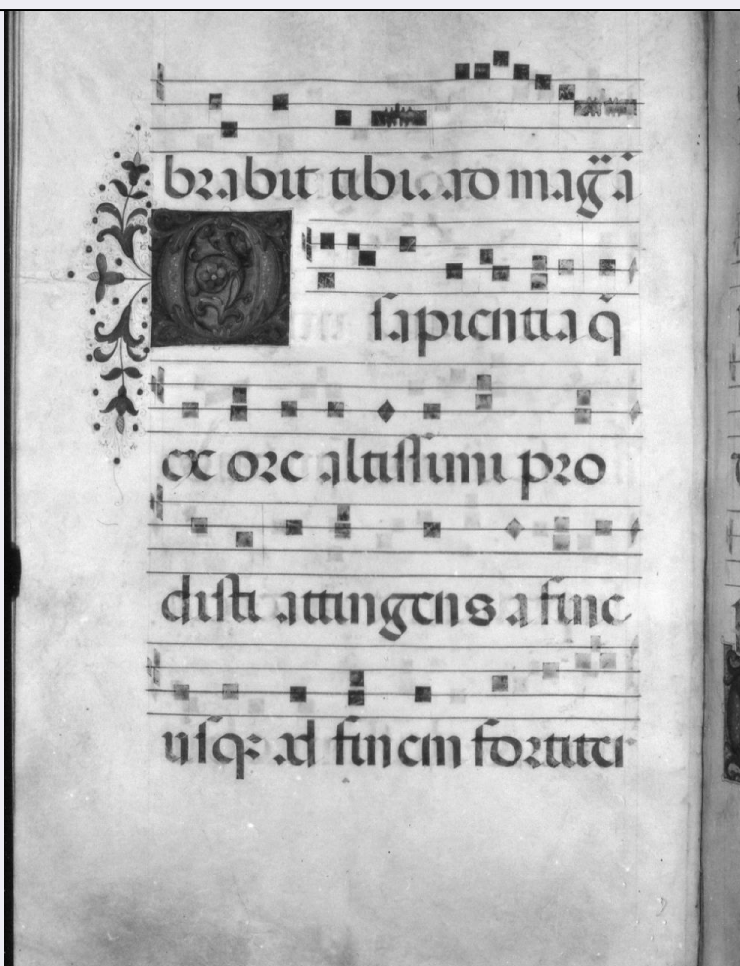 brabit tibi. ad mag̃ã
O sapientia q̃
ex ore altissimi pro
disti attingens a fine
usq: ad finem fortiter